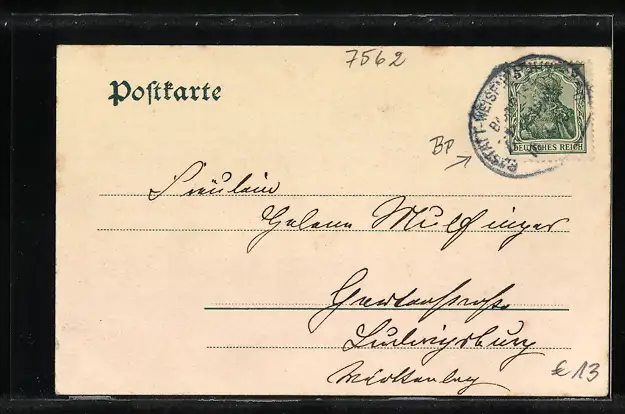 7562
Postkarte
DEUTSCHES REICH
RASTATT-WEISEN
BP
Fräulein
Helene Mulfinger
Gartenstraße
Ludwigsburg
Württemberg
€ 13